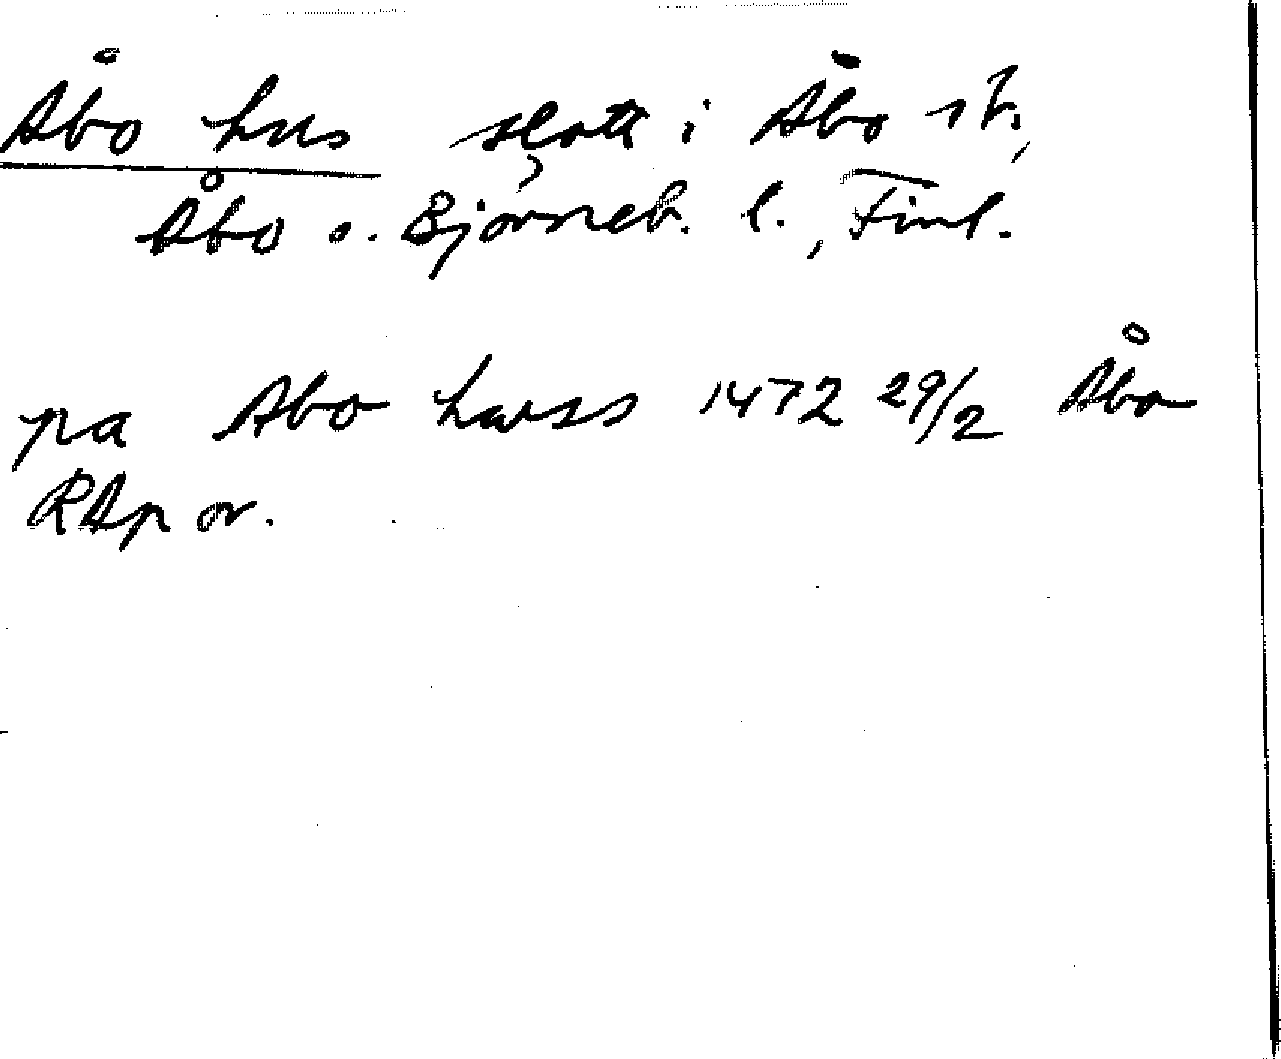 Åbo hus slott i Åbo st.,
Åbo o. Björneb. l., Finl.
pa Abo hwss 1472 29/2 Åbo
RAp or.